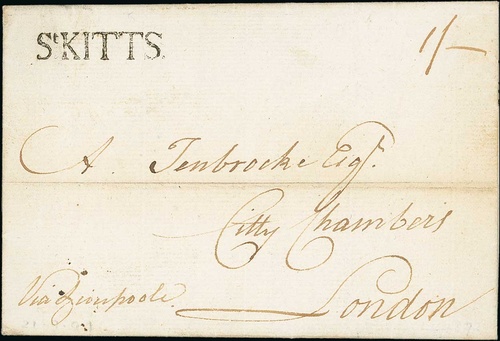 St KITTS.
1/-
A. Tenbrocke Esqr.
Citty Chambers
London
Via Liverpoole.